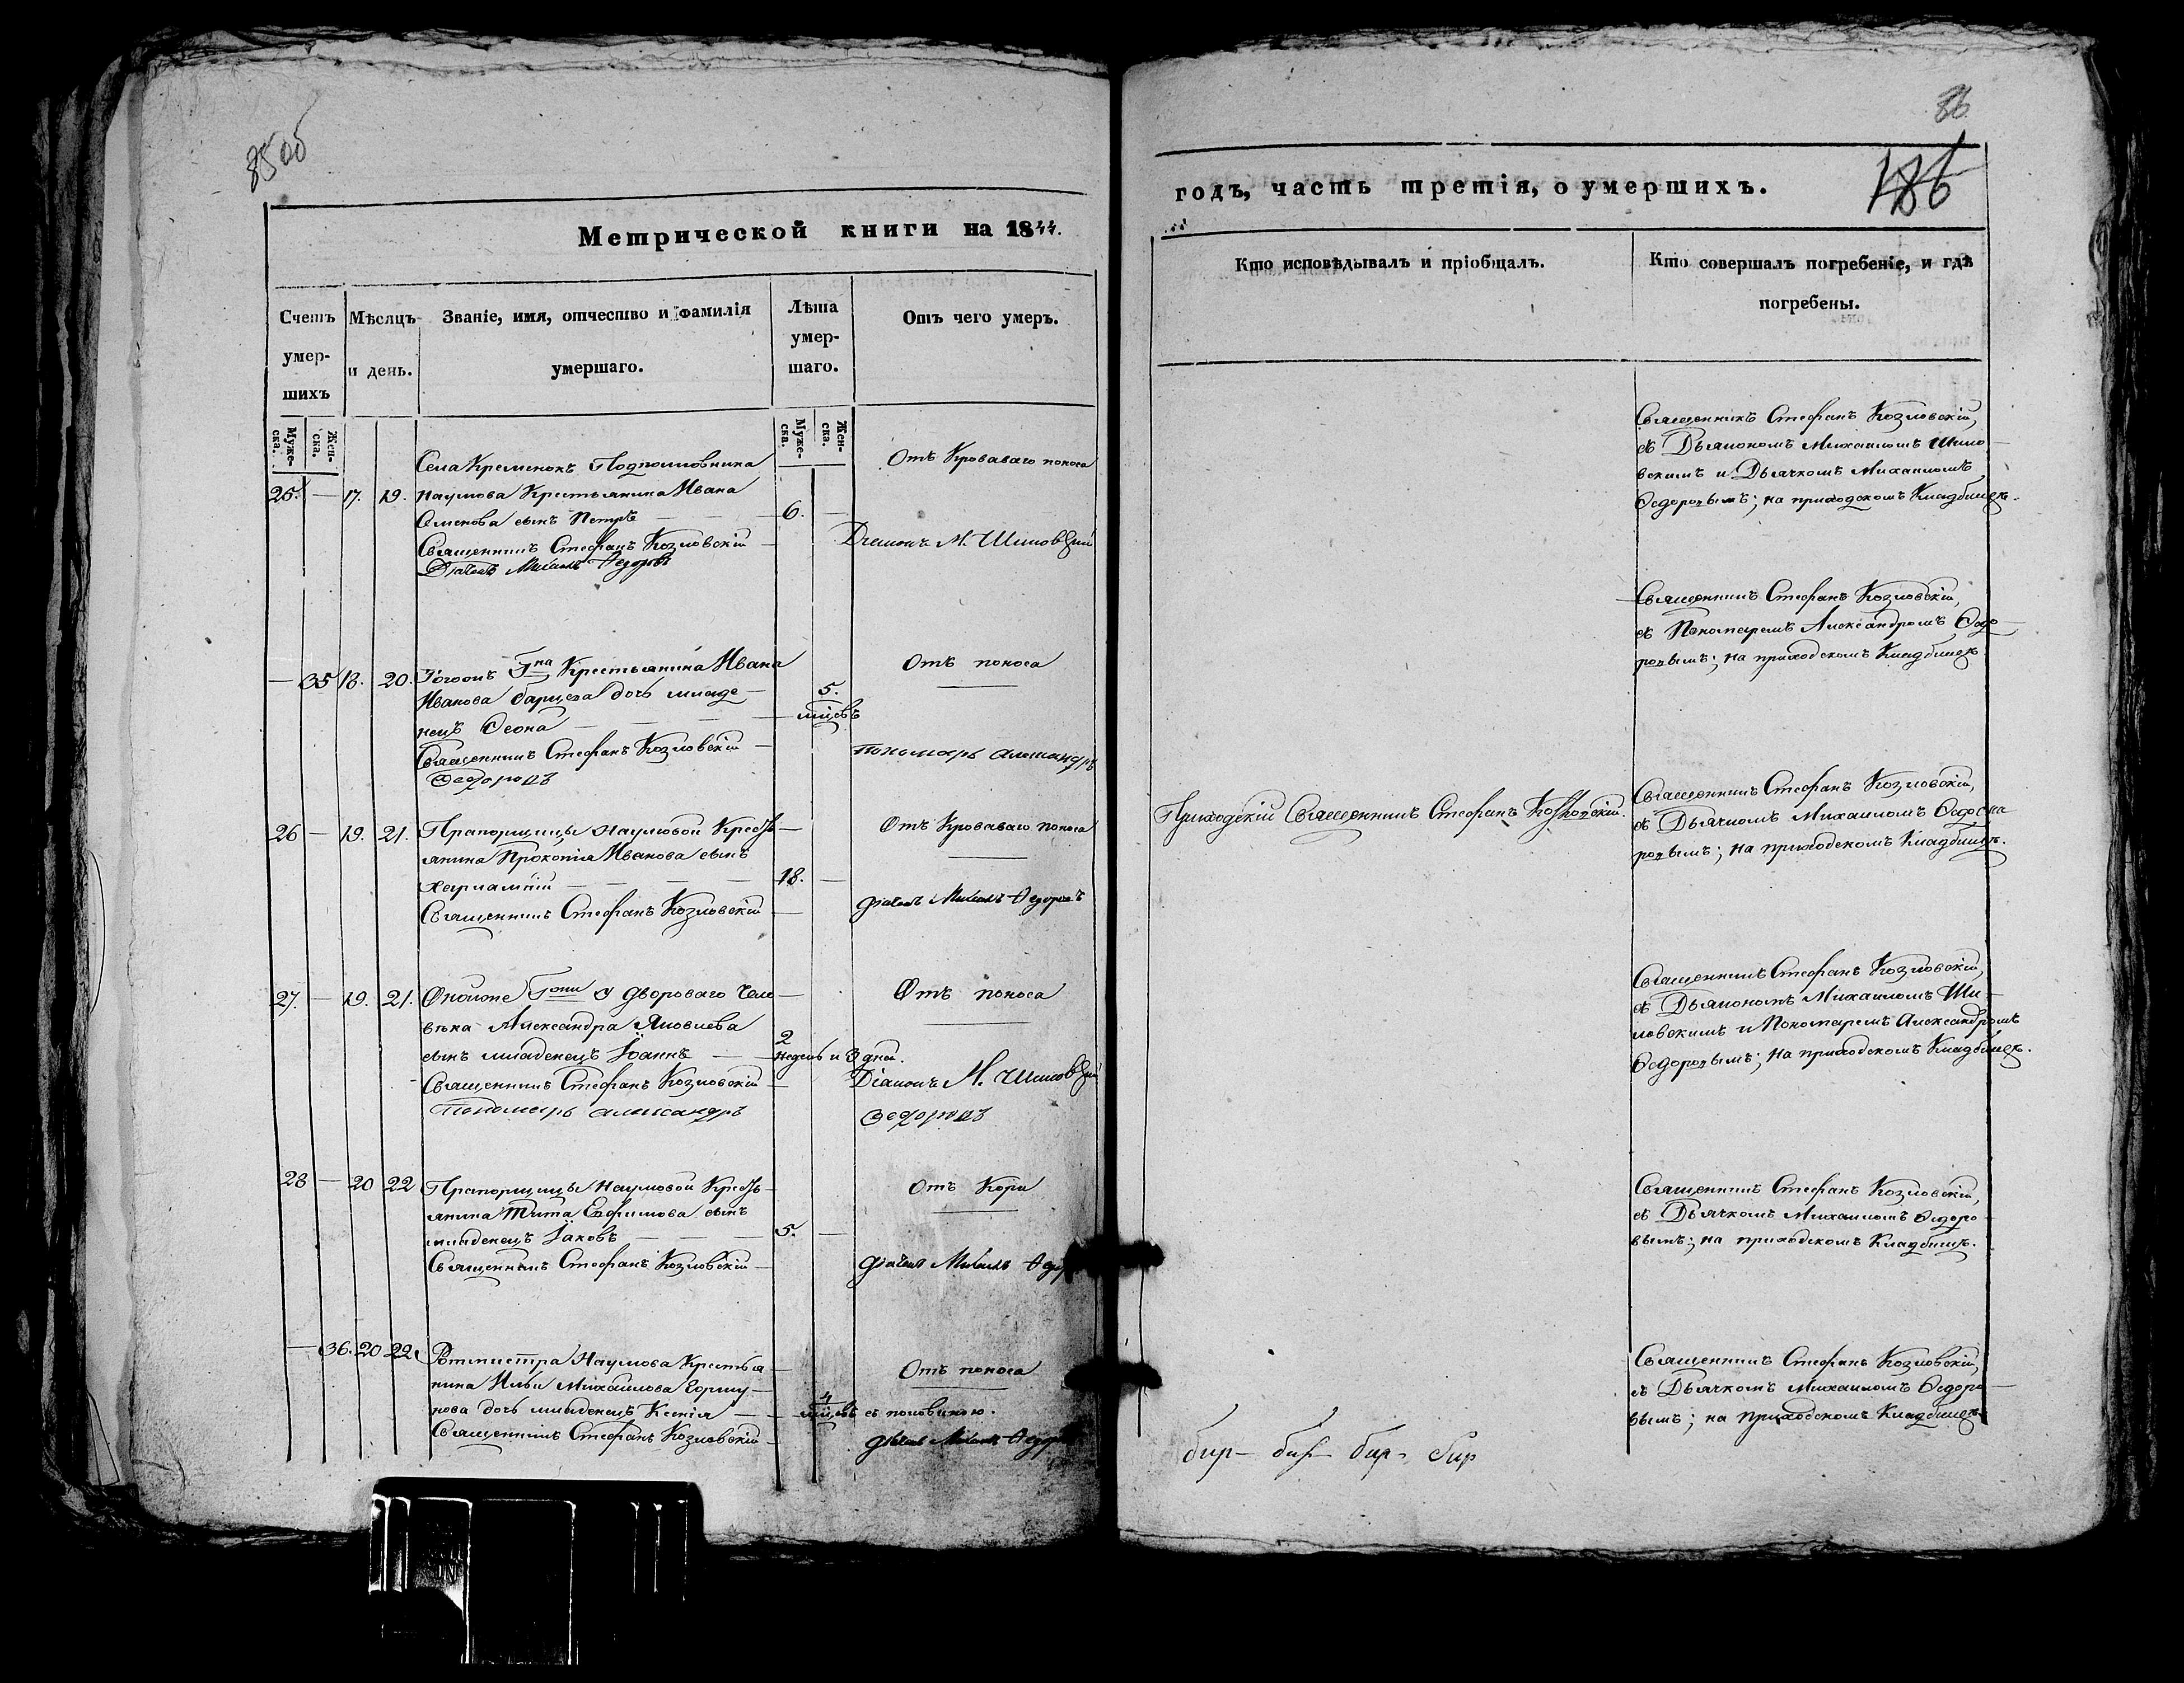 85об
Метрической книги на 1844.
Счетъ умер-шихъ
Мѣсяцъ и день.
Званіе, имя, отчество и фамилія умершаго.
Лѣта умер-шаго.
Отъ чего умеръ.
Муже-ска.
Жен-ска.
Муже-ска.
Жен-ска.
Села Кременокъ Подполковника
Отъ Кроваваго поноса
25. — 17. 19. Наумова Крестьянина Ивана
сынъ Петръ — 6. —
Священникъ Стефанъ Козловскій — Діаконъ М. Шиловскій
Дьячекъ Михаилъ Федоровъ
— 35 18. 20. Гна Крестьянина Ивана
Отъ поноса
Иванова дочь младе-
5.
нецъ Ѳеона — мцовъ
Священникъ Стефанъ Козловскій — Пономарь Александръ
Федоровъ
26 — 19. 21. Прапорщицы Наумовой Кресть-
Отъ Кроваваго поноса
янина Прокопія Иванова сынъ
Харлампій — 18. —
Священникъ Стефанъ Козловскій — Дьячекъ Михаилъ Федоровъ
27. — 19. 21. дворового чело-
Отъ поноса
вѣка Александра Яковлева
2
сынъ младенецъ Іоаннъ — недѣль и 3 дней.
Священникъ Стефанъ Козловскій — Діаконъ М. Шиловскій
Пономарь Александръ Федоровъ
28 — 20 22 Прапорщицы Наумовой Кресть-
Отъ Кори
янина Тита Евфимова сынъ
младенецъ Іаковъ — 5. —
Священникъ Стефанъ Козловскій — Дьячекъ Михаилъ
— 36. 20 22. Ротмистра Наумова Крестья-
Отъ поноса
нина Ильи Михайлова Горшу-
4
нова дочь младенецъ Ксенія — мцовъ съ половиною.
Священникъ Стефанъ Козловскій — Дьячекъ Михаилъ
86
186
годъ, часть третія, о умершихъ.
Кто исповѣдывалъ и пріобщалъ.
Кто совершалъ погребеніе, и гдѣ погребены.
Священникъ Стефанъ Козловскій,
съ Дьякономъ Михаиломъ Шило-
вскимъ и Дьячкомъ Михаиломъ
Ѳедоровымъ; на приходскомъ Кладбищѣ.
Священникъ Стефанъ Козловскій,
съ Пономаремъ Александромъ Ѳедо-
ровымъ; на приходскомъ Кладбищѣ
Приходскій Священникъ Стефанъ Козловскій.
Священникъ Стефанъ Козловскій,
съ Дьячкомъ Михаиломъ
ровымъ; на приходскомъ Кладбищѣ.
Священникъ Стефанъ Козловскій,
съ Дьякономъ Михаиломъ Ши-
ловскимъ и Пономаремъ Александромъ
Ѳедоровымъ; на приходскомъ Кладбищѣ.
Священникъ Стефанъ Козловскій,
съ Дьячкомъ Михаиломъ Ѳедоро-
вымъ; на приходскомъ Кладбищѣ.
Священникъ Стефанъ Козловскій,
съ Дьячкомъ Михаиломъ Ѳедоро-
вымъ; на приходскомъ Кладбищѣ.